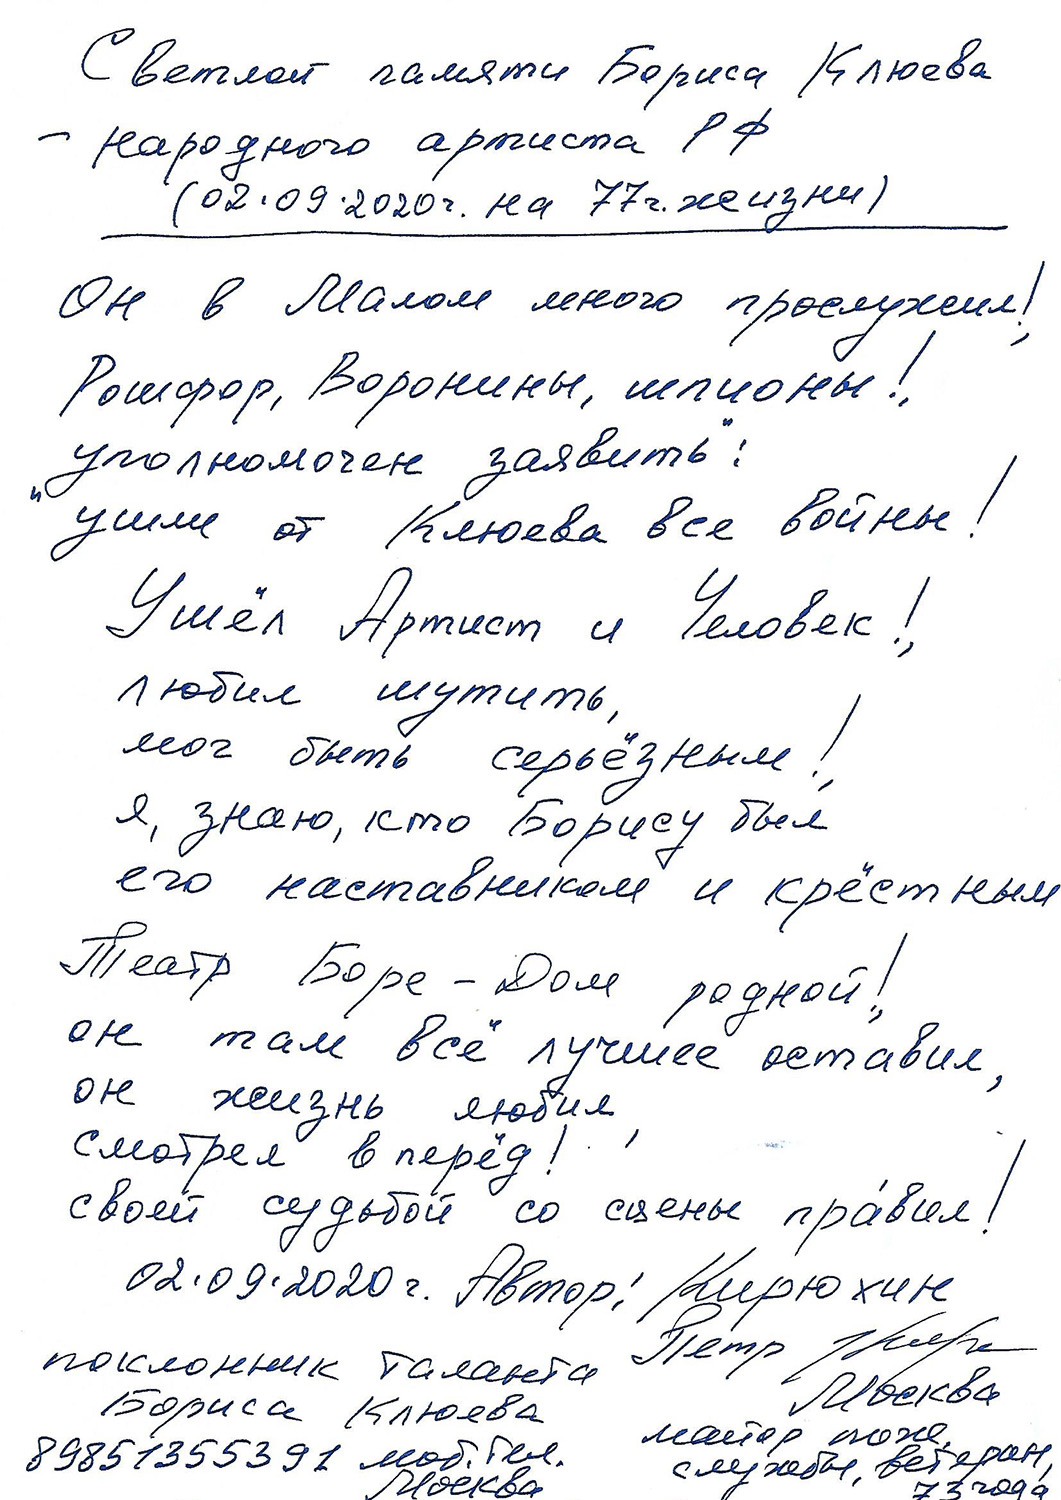 Светлой памяти Бориса Клюева
- народного артиста РФ
(02.09.2020г. на 77г. жизни)
Он в Малом много прослужил!,
Рошфор, Воронины, шпионы!,
уполномочен заявить":
"ушли от Клюева все войны!
Ушёл Артист и Человек!,
любил шутить,
мог быть серьёзным!,
я, знаю, кто Борису был
его наставником и крёстным
Театр Боре - Дом родной!,
он там всё лучшее оставил,
он жизнь любил,
смотрел вперёд!
своей судьбой со сцены пра́вил!
02.09.2020г. Автор: Кирюхин
Петр
поклонник таланта
Бориса Клюева
89851355391 моб.тел.
Москва
Москва
майор пож.
службы, ветеран,
73 года